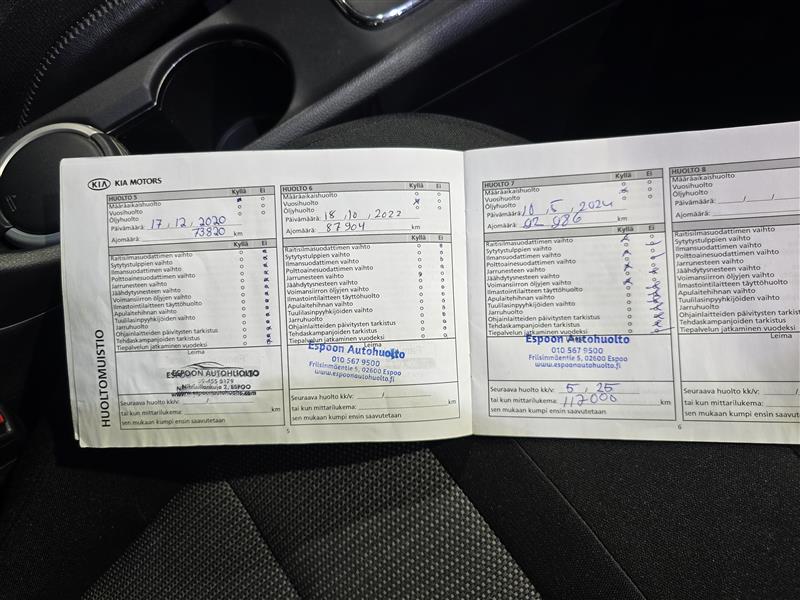 KIA KIA MOTORS
HUOLTOMUISTIO
HUOLTO 5 Kyllä Ei
Määräaikaishuolto
Vuosihuolto
Öljyhuolto
Päivämäärä: 17, 12, 2020
Ajomäärä: 73820 km
Kyllä Ei
Raitisilmasuodattimen vaihto
Sytytystulppien vaihto
Ilmansuodattimen vaihto
Polttoainesuodattimen vaihto
Jarrunesteen vaihto
Jäähdytysnesteen vaihto
Voimansiirron öljyjen vaihto
Ilmastointilaitteen täyttöhuolto
Apulaitehihnan vaihto
Tuulilasinpyyhkijöiden vaihto
Jarruhuolto
Ohjainlaitteiden päivitysten tarkistus
Tehdaskampanjoiden tarkistus
Tiepalvelun jatkaminen vuodeksi
Leima
ESPOON AUTOHUOLTO
Niittyläisenkuja 2, ESPOO
www.espoonautohuolto.com
Seuraava huolto kk/v: /
tai kun mittarilukema: km
sen mukaan kumpi ensin saavutetaan
5
HUOLTO 6 Kyllä Ei
Määräaikaishuolto
Vuosihuolto
Öljyhuolto
Päivämäärä: 18, 10, 2022
Ajomäärä: 87904 km
Kyllä Ei
Raitisilmasuodattimen vaihto
Sytytystulppien vaihto
Ilmansuodattimen vaihto
Polttoainesuodattimen vaihto
Jarrunesteen vaihto
Jäähdytysnesteen vaihto
Voimansiirron öljyjen vaihto
Ilmastointilaitteen täyttöhuolto
Apulaitehihnan vaihto
Tuulilasinpyyhkijöiden vaihto
Jarruhuolto
Ohjainlaitteiden päivitysten tarkistus
Tehdaskampanjoiden tarkistus
Tiepalvelun jatkaminen vuodeksi
Leima
Espoon Autohuolto
010 567 9500
Friisinmäentie 5, 02600 Espoo
www.espoonautohuolto.fi
Seuraava huolto kk/v: /
tai kun mittarilukema: km
sen mukaan kumpi ensin saavutetaan
HUOLTO 7 Kyllä Ei
Määräaikaishuolto
Vuosihuolto
Öljyhuolto
Päivämäärä: 10, 5, 2024
Ajomäärä: km
Kyllä Ei
Raitisilmasuodattimen vaihto
Sytytystulppien vaihto
Ilmansuodattimen vaihto
Polttoainesuodattimen vaihto
Jarrunesteen vaihto
Jäähdytysnesteen vaihto
Voimansiirron öljyjen vaihto
Ilmastointilaitteen täyttöhuolto
Apulaitehihnan vaihto
Tuulilasinpyyhkijöiden vaihto
Jarruhuolto
Ohjainlaitteiden päivitysten tarkistus
Tehdaskampanjoiden tarkistus
Tiepalvelun jatkaminen vuodeksi
Espoon Autohuolto
010 567 9500
Friisinmäentie 5, 02600 Espoo
www.espoonautohuolto.fi
Seuraava huolto kk/v: 5, 25
tai kun mittarilukema: 117000 km
sen mukaan kumpi ensin saavutetaan
6
HUOLTO 8
Määräaikaishuolto
Vuosihuolto
Öljyhuolto
Päivämäärä: , ,
Ajomäärä:
Raitisilmasuodattimen vaihto
Sytytystulppien vaihto
Ilmansuodattimen vaihto
Polttoainesuodattimen vaihto
Jarrunesteen vaihto
Jäähdytysnesteen vaihto
Voimansiirron öljyjen vaihto
Ilmastointilaitteen täyttöhuolto
Apulaitehihnan vaihto
Tuulilasinpyyhkijöiden vaihto
Jarruhuolto
Ohjainlaitteiden päivitysten tarkistus
Tehdaskampanjoiden tarkistus
Tiepalvelun jatkaminen vuodeksi
Seuraava huolto kk/v:
tai kun mittarilukema:
sen mukaan kumpi ensin saavutetaan